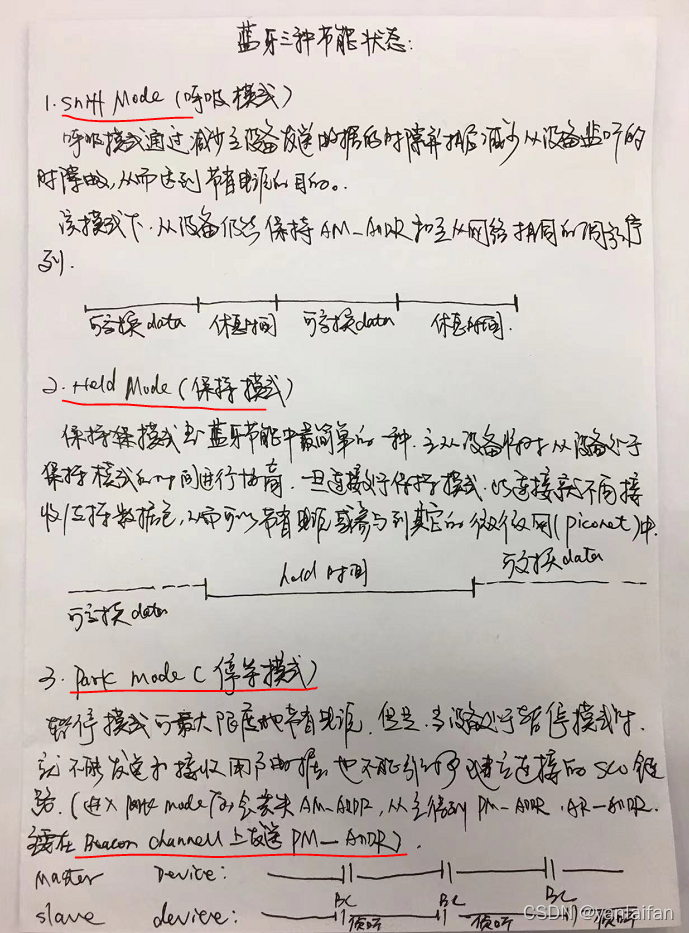 蓝牙三种节能状态:
1. Sniff Mode (呼吸模式)
呼吸模式通过减少主设备发送数据的时隙并相应减少从设备监听的
时隙数,从而达到节省电源的目的。
该模式下,从设备仍然保持AM_ADDR和主从网络相同的调频序
列.
可交换data 休息时间 可交换data 休息时间.
2. Held Mode (保持模式)
保持模式 蓝牙节能中最简单的一种. 主从设备 从设备处于
保持模式的时间进行协商. 一旦连接处于保持模式. 连接就不再接
收 数据包,从而可以节省电源或参与到其它的微微网(piconet)中.
可交换data hold时间 可交换data
3. Park mode (停等模式)
暂停模式可最大限度地节省电源. 但是,当设备处于暂停模式时.
就不能发送和接收用户数据 也不能 建立连接的SCO链
路. (进入park mode 会丢失AM_ADDR, 从主得到PM_ADDR. AR_ADDR.
在Beacon channel上发送PM_ADDR).
master Device:
BC BC BC
slave device: 侦听 侦听 侦听
CSDN @yantaifan